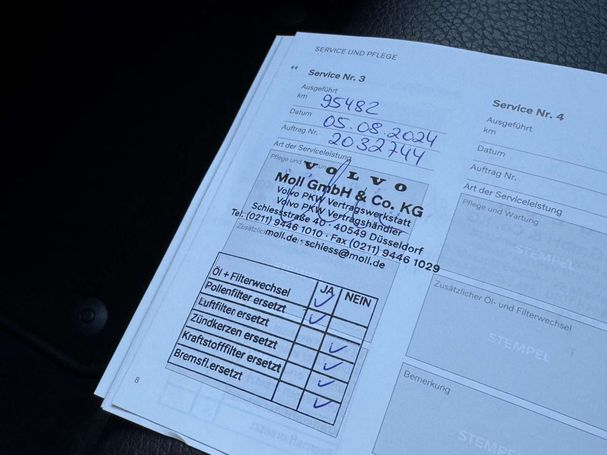 SERVICE UND PFLEGE
Service Nr. 3
Ausgeführt
km 95482
Datum 05.08.2024
Auftrag Nr. 2032744
Art der Serviceleistung
Pflege und Wartung
VOLVO
Moll GmbH & Co. KG
Volvo PKW Vertragswerkstatt
Volvo PKW Vertragshändler
Schiessstraße 40 · 40549 Düsseldorf
Tel. (0211) 9446 1010 · Fax (0211) 9446 1029
moll.de · schiess@moll.de
Zusätzlicher
JA NEIN
Öl + Filterwechsel
Pollenfilter ersetzt
Luftfilter ersetzt
Zündkerzen ersetzt
Kraftstofffilter ersetzt
Bremsfl.ersetzt
8
Service Nr. 4
Ausgeführt
km
Datum
Auftrag Nr.
Art der Serviceleistung
Pflege und Wartung
Zusätzlicher Öl- und Filterwechsel
STEMPEL
Bemerkung
STEMPEL